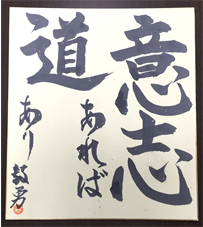 意志
あれば
道
あり